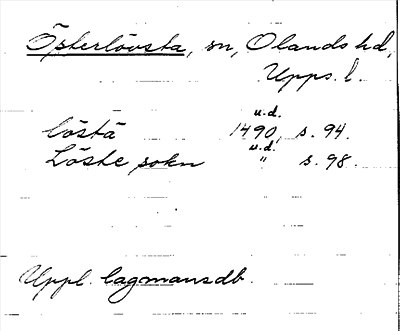 Österlövsta, sn, Olands hd,
Upps. l.
u.d.
löstä 1490, s. 94.
u.d.
Löste sokn " s. 98.
Uppl. lagmansdb.